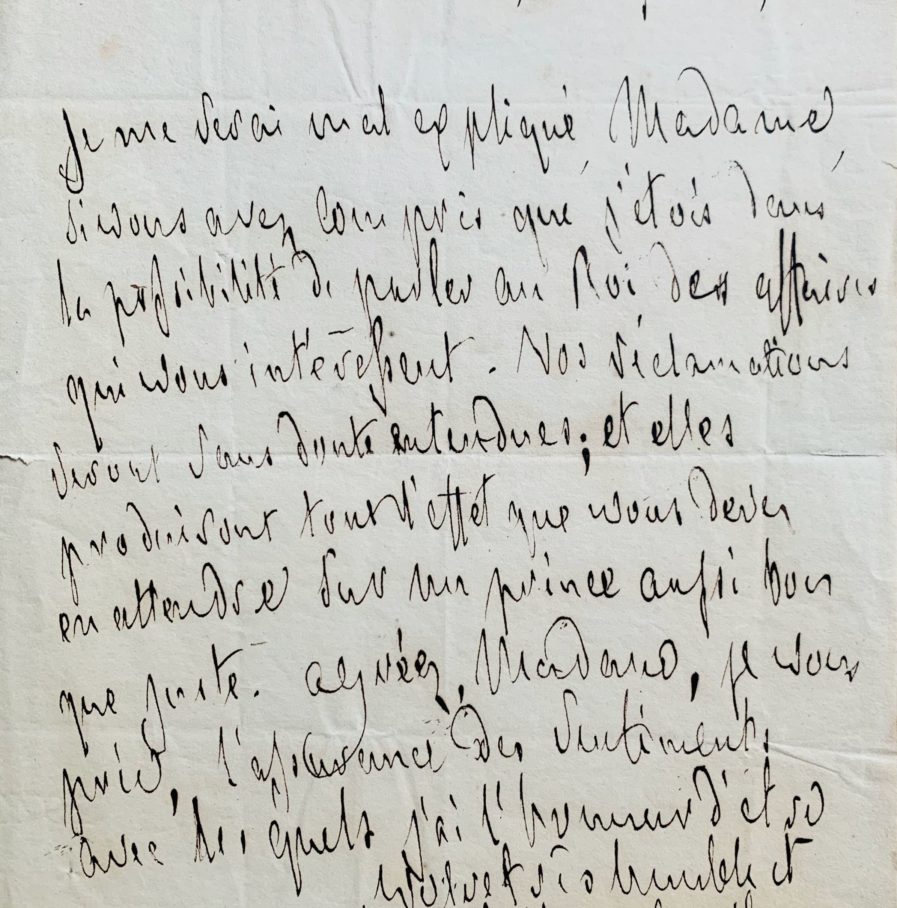 Je me serai mal expliqué, Madame,
si vous avez compris que j'étois dans
la possibilité de parler au Roi des affaires
qui vous intéressent. Vos réclamations
seront sans doute entendues; et elles
produiront tout l'effet que vous devez
en attendre sur un prince aussi bon
que juste. agréez, Madame, je vous
prie, l'assurance des sentiments
avec lesquels j'ai l'honneur d'etre
votre très humble et